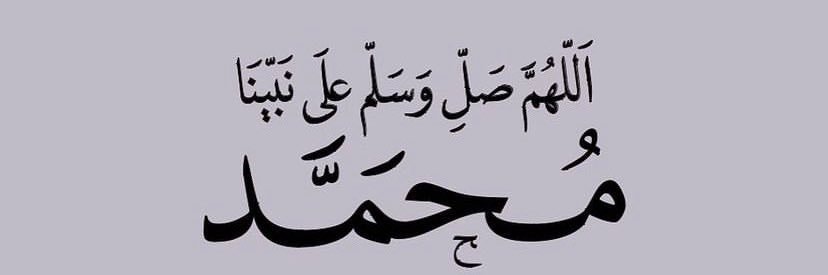 اَللّٰهُمَّ صَلِّ وَسَلِّم عَلَى نَبِيِّنَا
مُحَمَّد